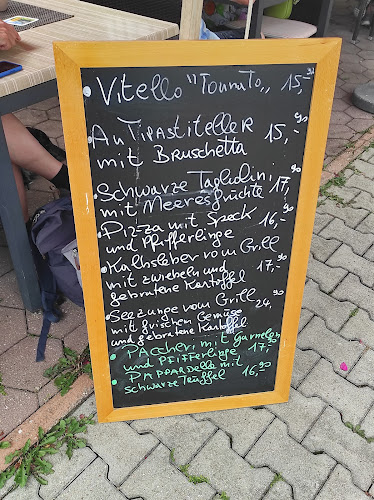 Vitello "Tonnato" 15,90
AnTipastiteller 15,90
mit Bruschetta
Schwarze Tagliolini 17,90
mit Meeresfrüchte
Pizza mit Speck 16,90
und Pfifferlinge
Kalbsleber vom Grill
mit zwiebeln und 17,90
gebratene Kartoffel
Seezunge vom Grill 24,90
mit frischem Gemüse
und gebratene Kartoffel
Paccheri mit garnelen
und Pfifferlinge 17,90
Pappardelle mit 16,90
schwarze Trüffel